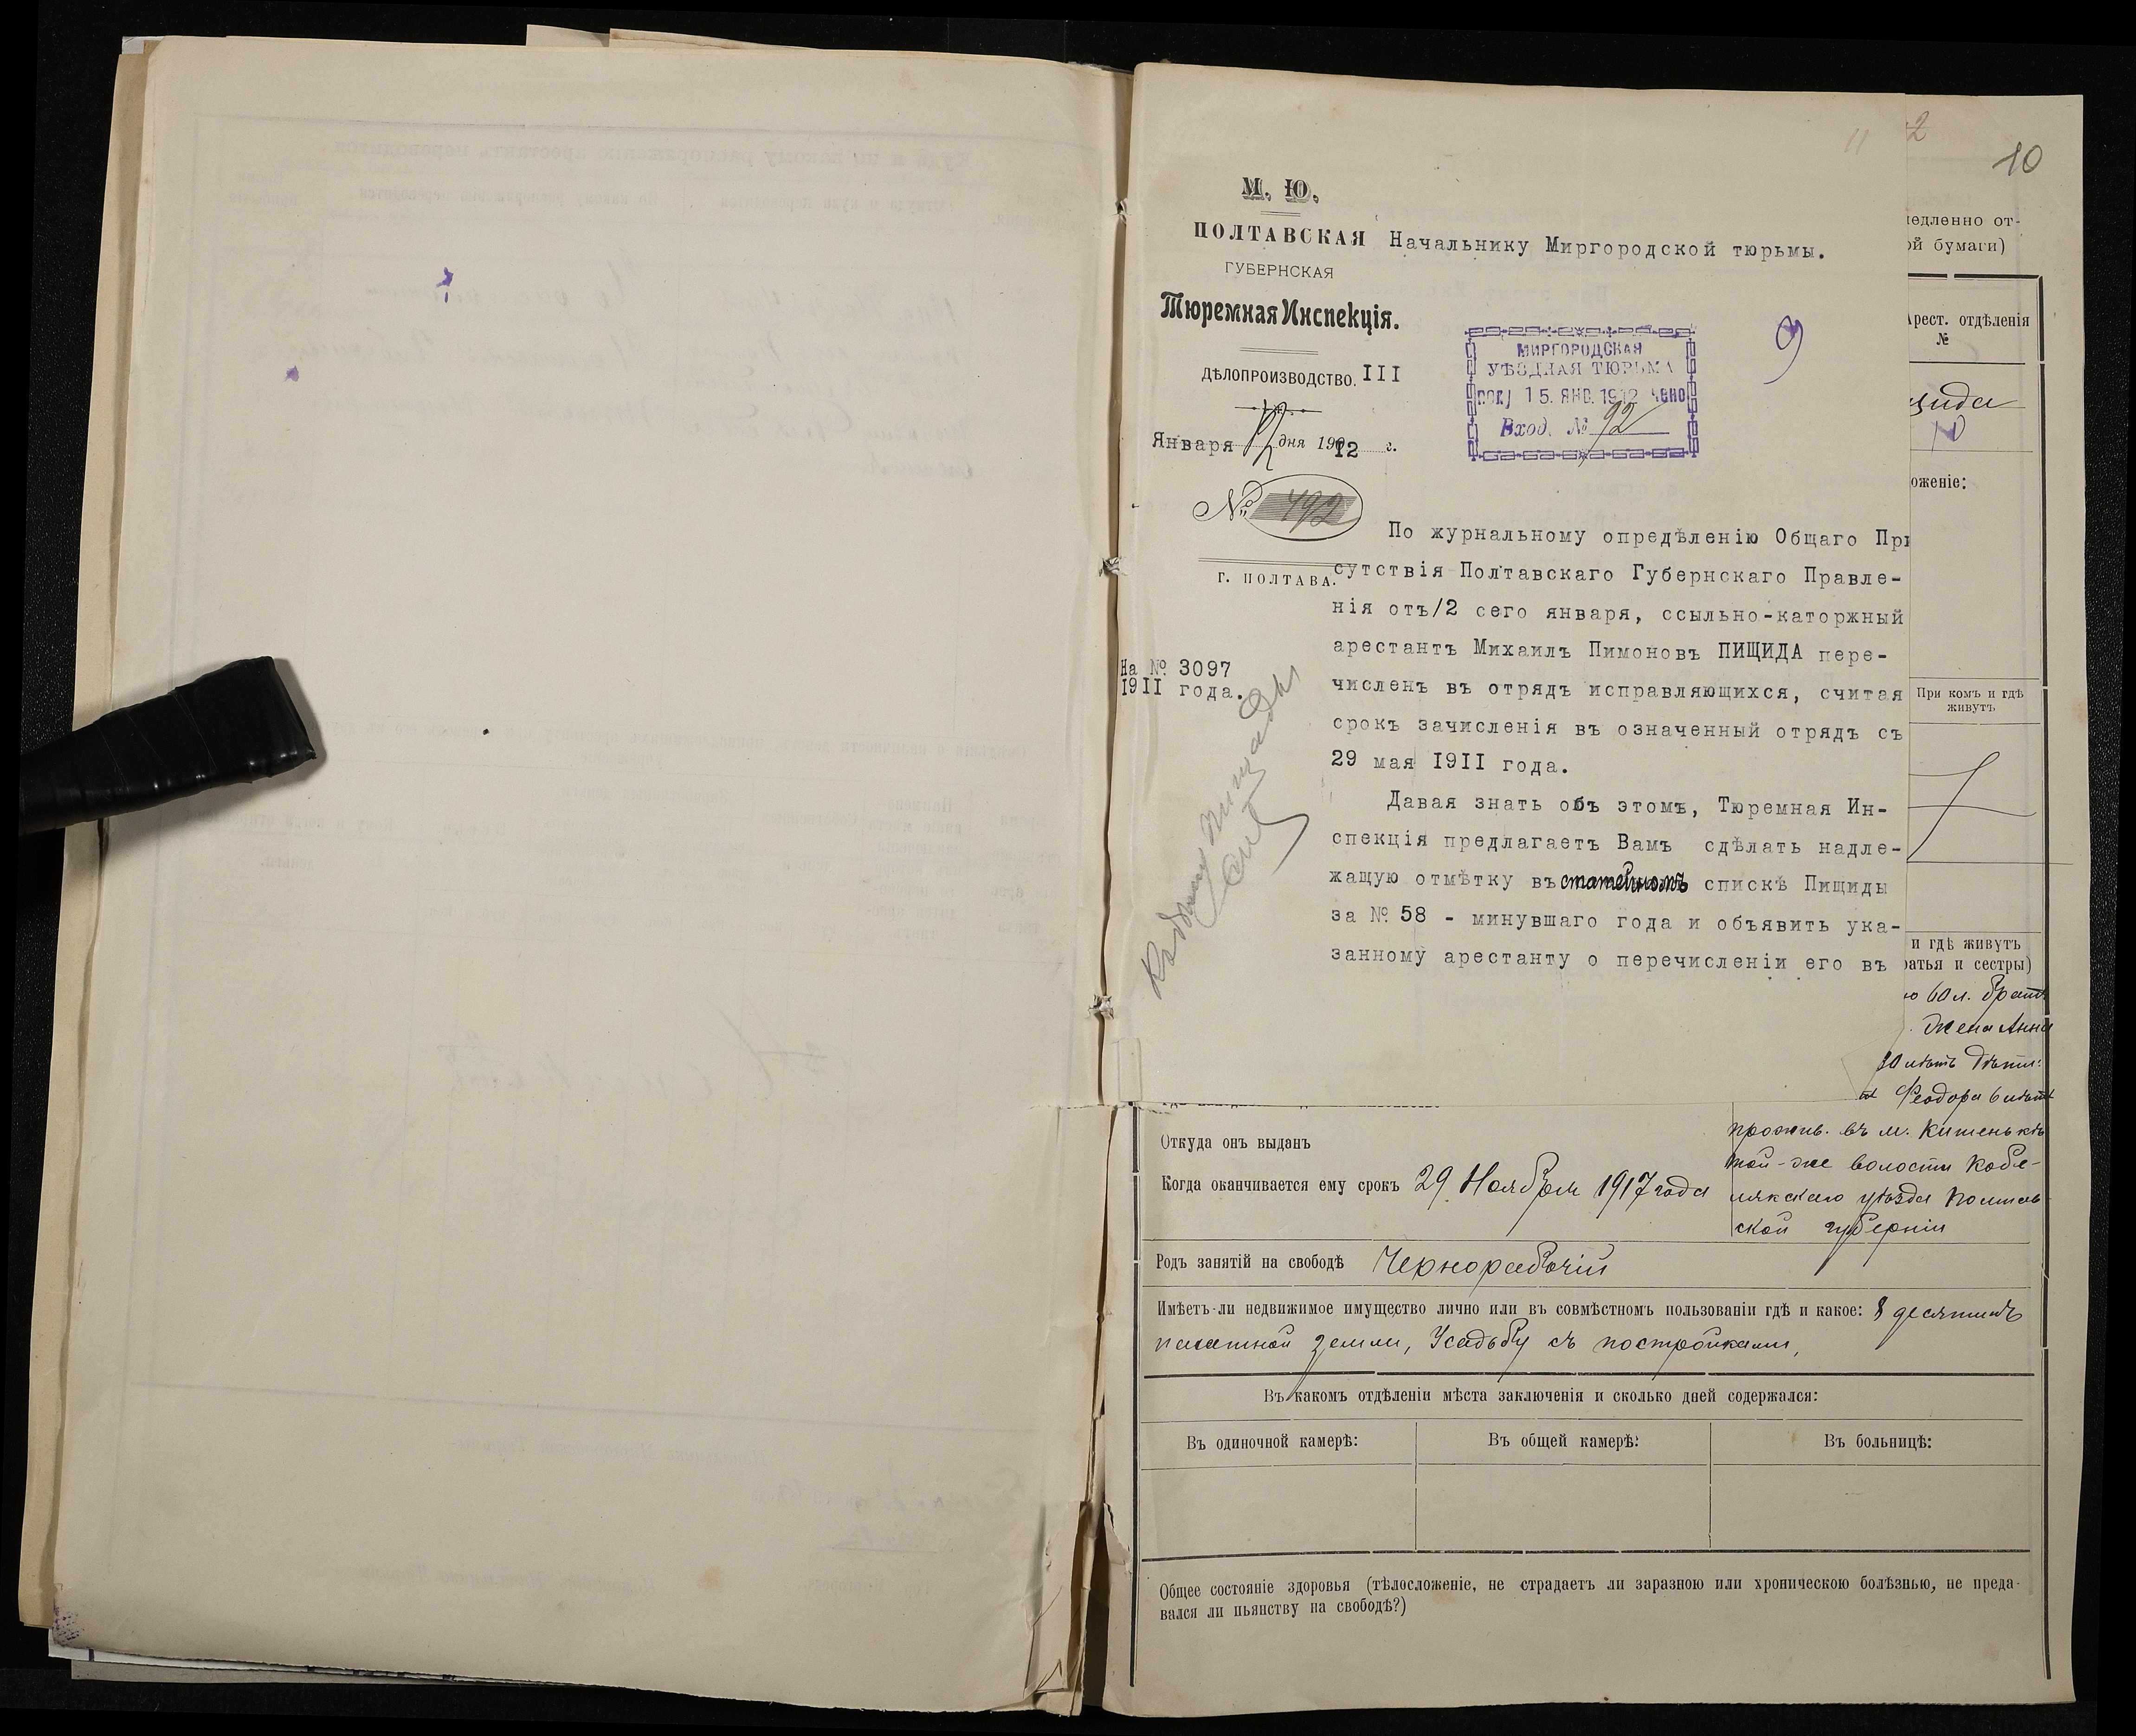 10
М. Ю.
ПОЛТАВСКАЯ
ГУБЕРНСКАЯ
Тюремная Инспекція.
ДѢЛОПРОИЗВОДСТВО. III
Января 12 дня 1912 г.
№ 492
г. ПОЛТАВА.
На № 3097
1911 года.
Начальнику Миргородской тюрьмы.
МИРГОРОДСКАЯ
УѢЗДНАЯ ТЮРЬМА
15. ЯНВ. 1912
Вход. № 92
9
По журнальному опредѣленію Общаго При
сутствія Полтавскаго Губернскаго Правле-
нія отъ/2 сего января, ссыльно-каторжный
арестантъ Михаилъ Пимоновъ ПИЩИДА пере-
численъ въ отрядъ исправляющихся, считая
срокъ зачисленія въ означенный отрядъ съ
29 мая 1911 года.
Давая знать объ этомъ, Тюремная Ин-
спекція предлагаетъ Вамъ сдѣлать надле-
жащую отмѣтку въ статейномъ спискѣ Пищиды
за № 58 - минувшаго года и объявить ука-
занному арестанту о перечисленіи его въ
медленно от-
ой бумаги)
Арест. отдѣленія
№
щида
оженіе:
При комъ и гдѣ
живутъ
и гдѣ живутъ
ратья и сестры)
60 л. братъ
Жена Анна
30 лѣтъ дѣти:
Феодора 6 лѣтъ
прожив. въ м. Китенькѣ
той-же волости Кобе-
лякскаго уѣзда Полтав-
ской губерніи
Откуда онъ выданъ
Когда оканчивается ему срокъ 29 Ноября 1917 года
Родъ занятій на свободѣ Чернорабочій
Имѣетъ-ли недвижимое имущество лично или въ совмѣстномъ пользованіи гдѣ и какое: 8 десятинъ
пахатной земли, Усадьбу съ постройками,
Въ какомъ отдѣленіи мѣста заключенія и сколько дней содержался:
Въ одиночной камерѣ:
Въ общей камерѣ:
Въ больницѣ:
Общее состояніе здоровья (тѣлосложеніе, не страдаетъ ли заразною или хроническою болѣзнью, не преда-
вался ли пьянству на свободѣ?)